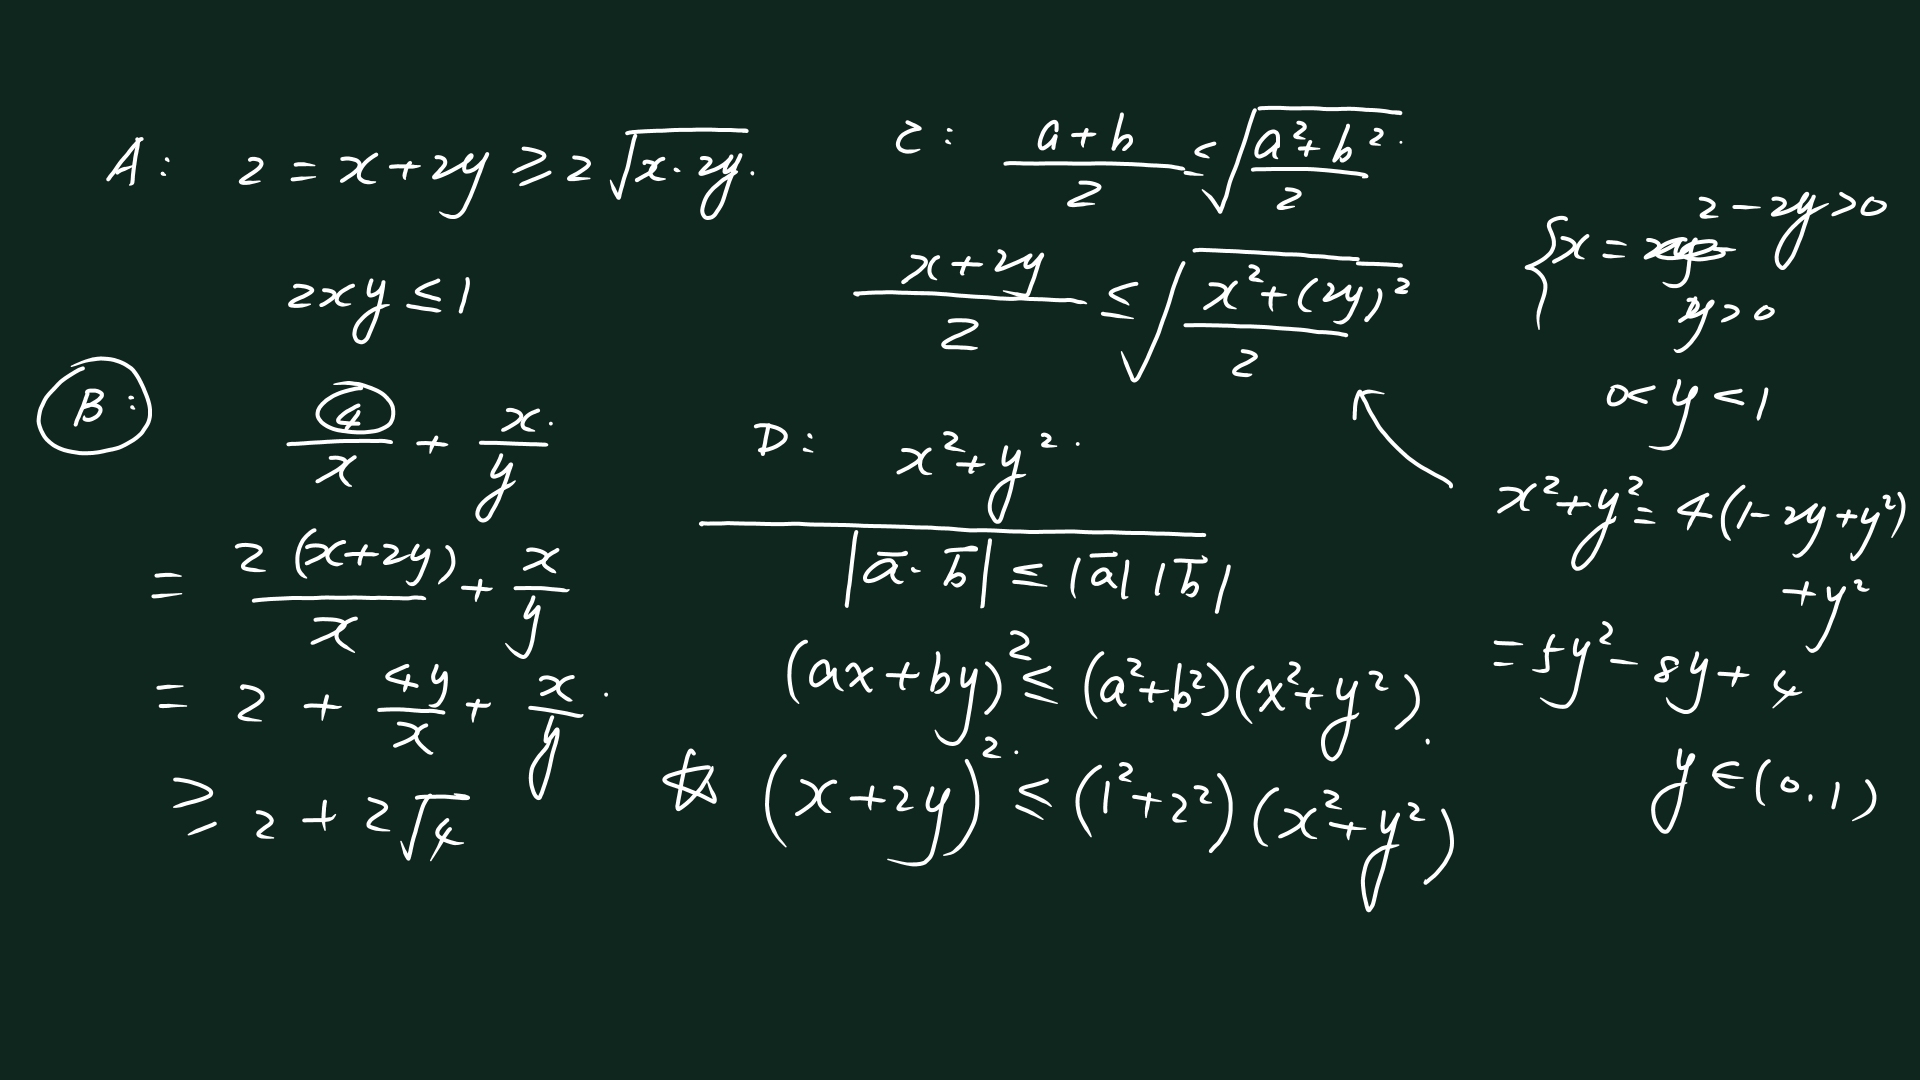 A: 2 = x + 2y ⩾ 2√(x · 2y)
2xy ≤ 1
B: 4/x + x/y
= 2(x+2y)/x + x/y
= 2 + 4y/x + x/y
⩾ 2 + 2√4
C: (a+b)/2 ≤ √((a²+b²)/2)
(x+2y)/2 ≤ √((x²+(2y)²)/2)
D: x²+y²
|a̅ · b̅| ≤ |a̅| |b̅|
(ax+by)² ≤ (a²+b²)(x²+y²)
☆ (x+2y)² ≤ (1²+2²)(x²+y²)
{ x = 2-2y>0
y>0
0<y<1
x²+y² = 4(1-2y+y²)
+y²
= 5y²-8y+4
y∈(0,1)